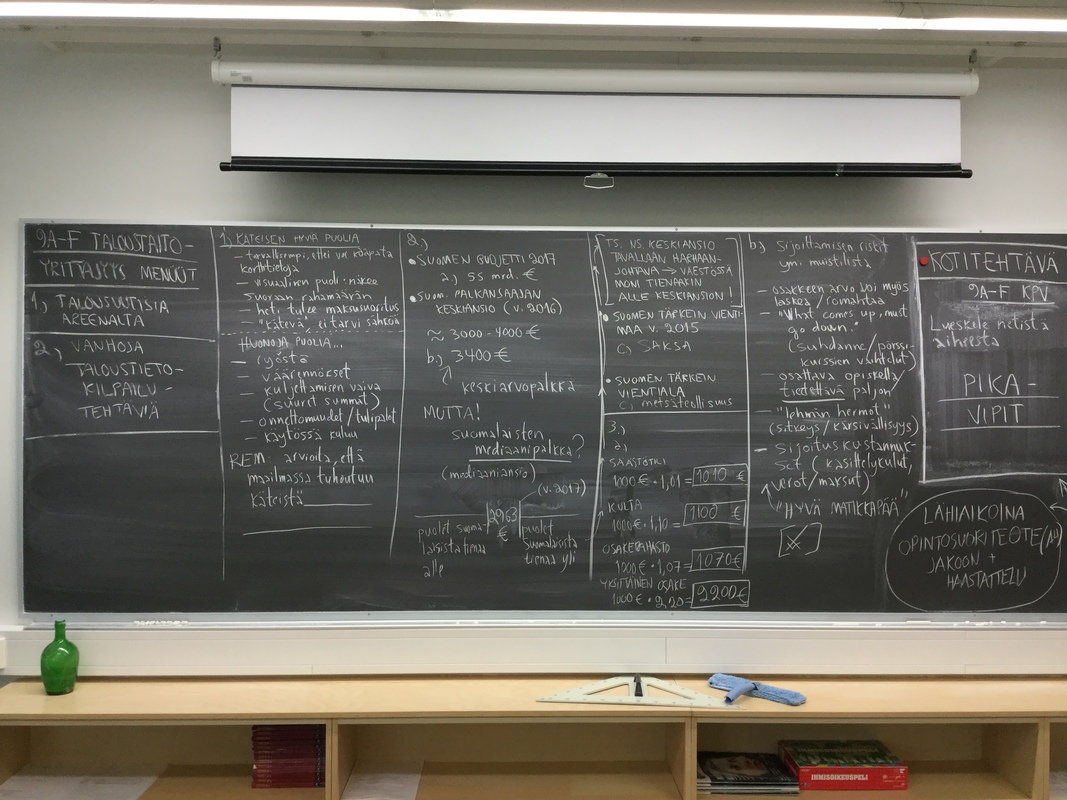 9A-F TALOUSTAITO-
YRITTÄJYYS MENOUT
1) TALOUSUUTISIA
AREENALTA
2) VANHOJA
TALOUSTIETO-
KILPAILU-
TEHTÄVIÄ
1) KÄTEISEN HYVIÄ PUOLIA
- turvallisempi, ettei voi kaapata
korttitietoja
- visuaalinen puoli: näkee
suoraan rahamäärän
- heti tulee maksusuoritus
- "kätevä", ei tarvi sähköä
HUONOJA PUOLIA...
- ryöstö
- väärennökset
- kuljettamisen vaiva
(suuret summat)
- onnettomuudet/tulipalot
- käytössä kuluu
REM: arvioita, että
maailmassa tuhoutuu
käteistä
2)
• SUOMEN BUDJETTI 2017
2) 55 mrd. €
• SUOM. PALKANSAAJAN
KESKIANSIO (v. 2016)
≈ 3000-4000 €
b) 3400 €
keskiarvopalkka
MUTTA!
suomalaisten
mediaanipalkka?
(mediaaniansio)
(v. 2017)
2963
€
puolet suoma-
laisista tienaa
alle
puolet
suomalaisista
tienaa yli
TS. NS. KESKIANSIO
TAVALLAAN HARHAAN-
JOHTAVA → VÄESTÖSSÄ
MONI TIENAAKIN
ALLE KESKIANSION!
• SUOMEN TÄRKEIN VIENTI-
MAA v. 2015
c) SAKSA
• SUOMEN TÄRKEIN
VIENTIALA
c) metsäteollisuus
3.)
a)
SÄÄSTÖTILI
1000 € · 1,01 = 1010 €
KULTA
1000 € · 1,10 = 1100 €
OSAKERAHASTO
1000 € · 1,07 = 1070 €
YKSITTÄINEN OSAKE
1000 € · 2,20 = 2200 €
b) Sijoittamisen riskit
ym. muistilista
- osakkeen arvo voi myös
laskea / romahtaa
- "What comes up, must
go down."
(suhdanne/pörssi-
kurssien vaihtelut)
- osattava opiskella/
tiedettävä paljon
- "lehmän hermot"
(sitkeys / kärsivällisyys)
- sijoituskustannuk-
set (käsittelykulut,
verot/maksut)
"HYVÄ MATIKKAPÄÄ"
KOTITEHTÄVÄ
9A-F KPV
Lueskele netistä
aiheesta
PIKA-
VIPIT
LÄHIAIKOINA
OPINTOSUORITEOTE
JAKOON +
HAASTATTELU
IHMISOIKEUSPELI